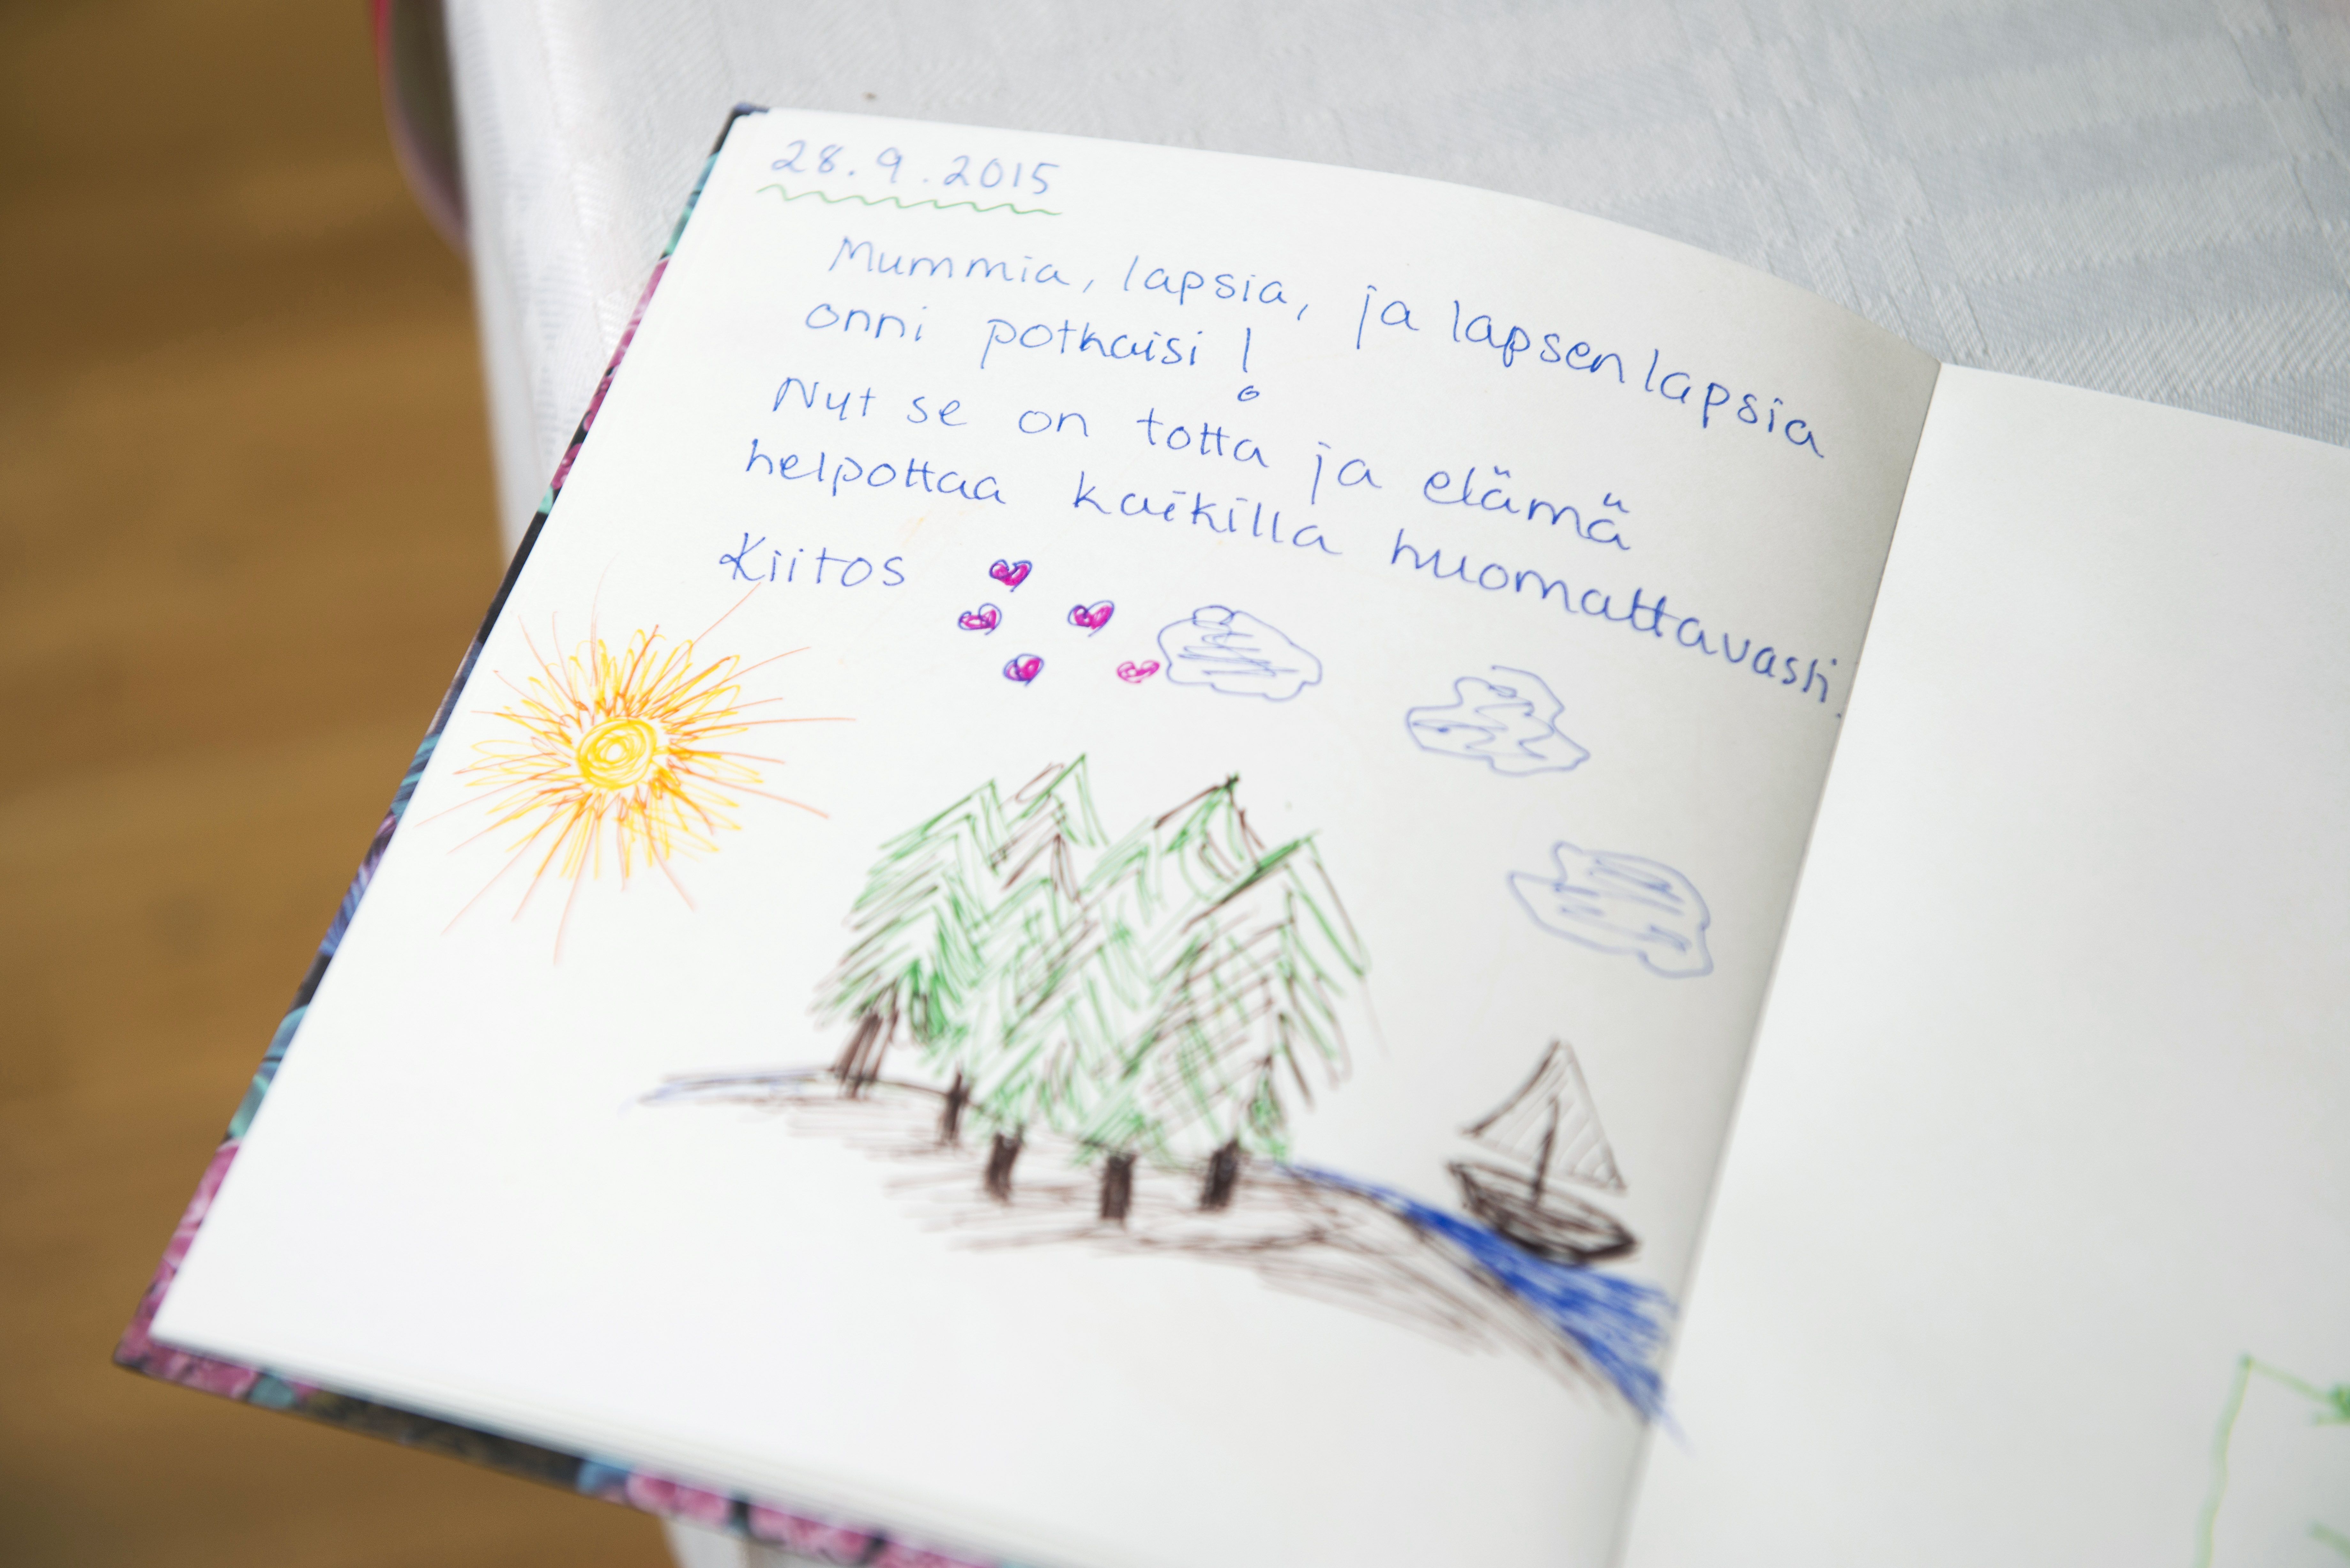 28.9.2015
Mummia, lapsia, ja lapsenlapsia
onni potkaisi!
Nyt se on totta ja elämä
helpottaa kaikilla huomattavasti.
Kiitos